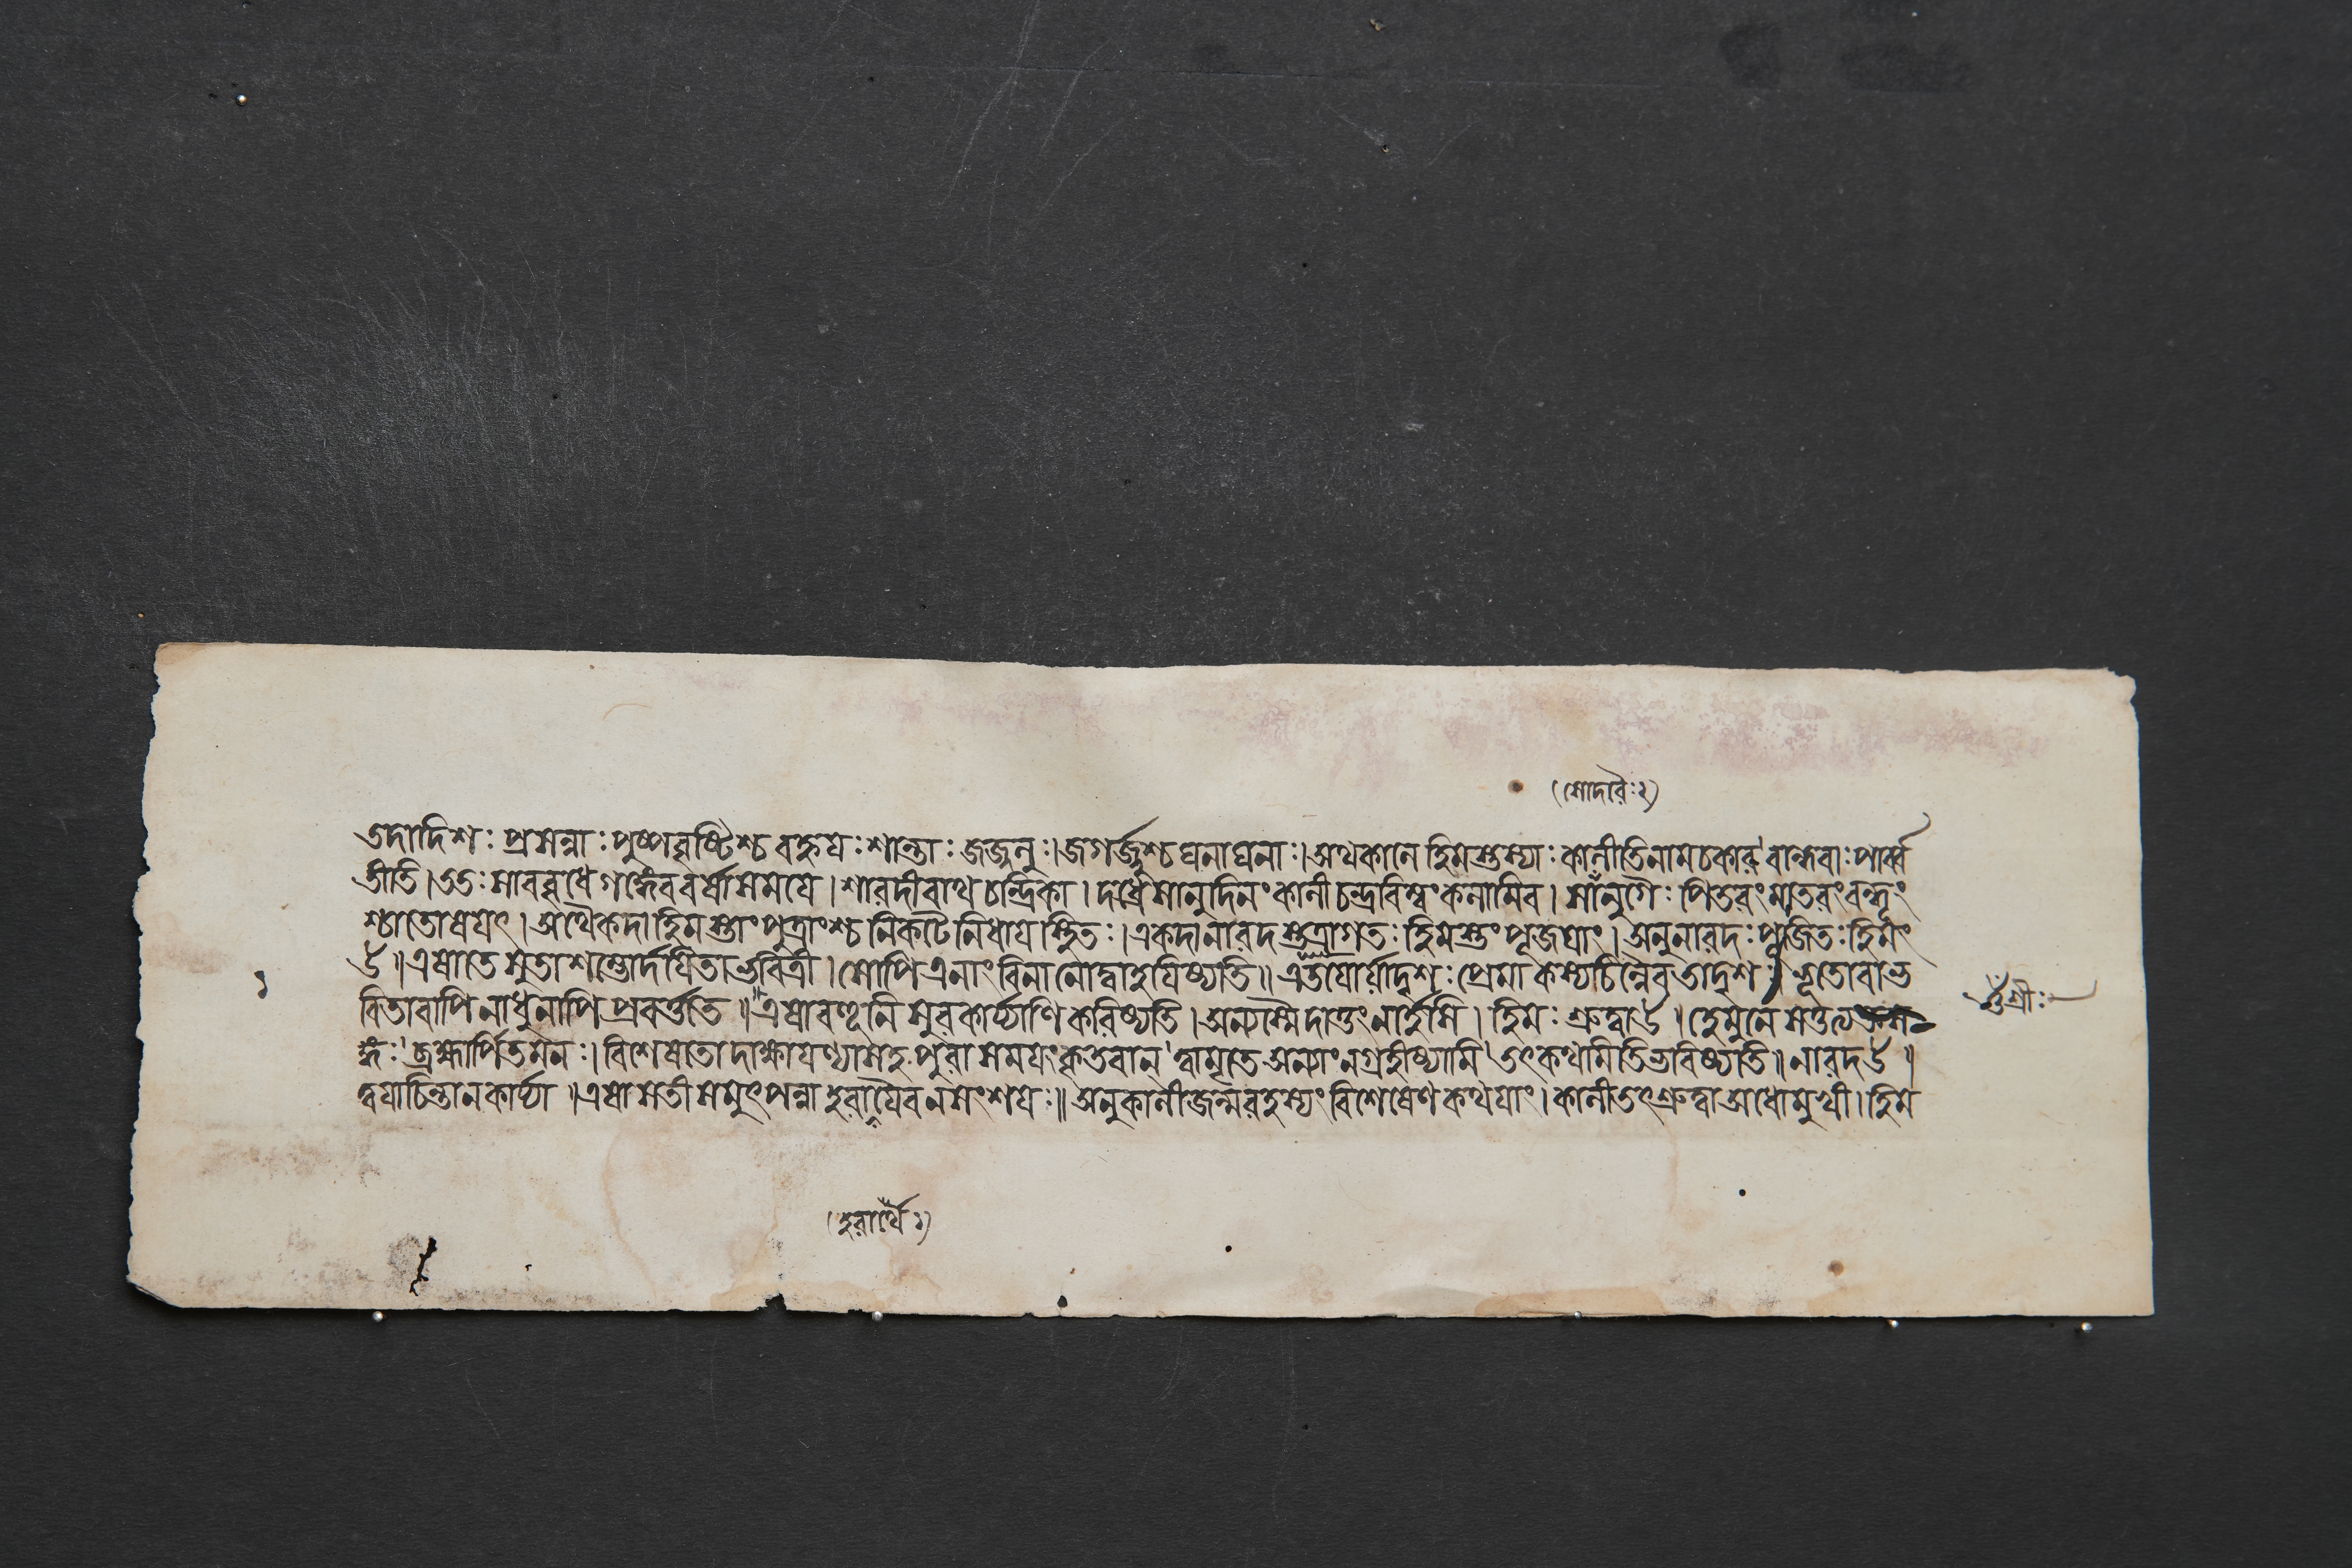 (সোদরৈঃ২)
তদা দিশঃ প্রসন্নাঃ পুষ্পবৃষ্টিশ্চ বহ্নয়ঃ শান্তাঃ জজ্বলুঃ। জগর্জ্জুশ্চ ঘনাঘনাঃ। অথ কালে হিমস্তস্যাঃ কালীতি নাম চকার' বান্ধবাঃ পার্ব্ব
তীতি। ততঃ সা ববৃধে গঙ্গেব বর্ষাসময়ে। শারদীবাথ চন্দ্রিকা। দধ্রে সানুদিনং কালী চন্দ্রবিম্বং কলামিব। সা গুণৈঃ পিতরং মাতরং বন্ধূং
শ্চাতোষয়ৎ। অথৈকদা হিমস্তাং পুত্রাংশ্চ নিকটে নিধায় স্থিতঃ। একদা নারদস্তত্রাগতঃ হিমস্তং পূজয়াং। অনু নারদঃ পূজিতঃ হিমং
॥ এষা তে সুতা শম্ভোর্দয়িতা ভবিত্রী। সোপি এনাং বিনা নোদ্বাহয়িষ্যতি॥ এতয়োর্য়াদৃশঃ প্রেমা কস্যচিন্নৈব তাদৃশঃ। ভূতো বা ভ
বিতা বাপি নাধুনাপি প্রবর্ত্ততে॥ এষা বহূনি সুরকার্য্যাণি করিষ্যতি। অন্যস্মৈ দাতুং নার্হসি। হিমঃ শ্রুত্বা। হে মুনে
শ্রীঃ
ঙ্গঃ' ব্রহ্মার্পিতমনঃ। বিশেষতো দাক্ষায়ণ্যা সহ পুরা সময়ং কৃতবান' ত্বামৃতে অন্যাং ন গ্রহীষ্যামি' তৎ কথমিতি ভবিষ্যতি॥ নারদ॥
ত্বয়া চিন্তা ন কার্য্যা॥ এষা সতী সমুৎপন্না হরায়ৈব ন সংশয়ঃ॥ অনু কালীজন্মরহস্যং বিশেষেণ কথয়াং। কালী তৎ শ্রুত্বা অধোমুখী। হিম